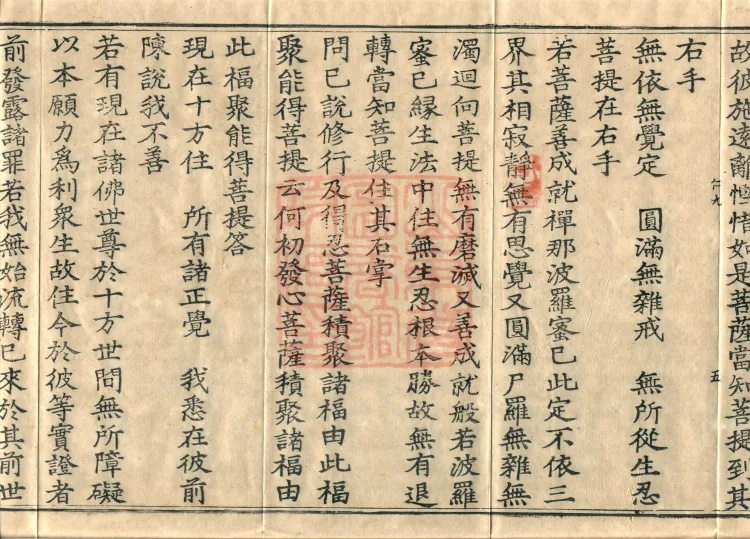 故彼施遠離慳惜如是菩薩當知菩提到其
右手
仁九 五
無依無覺定　圓滿無雜戒　無所從生忍
菩提在右手
若菩薩善成就禪那波羅蜜已此定不依三
界其相寂靜無有思覺又圓滿尸羅無雜無
濁迴向菩提無有磨滅又善成就般若波羅
蜜已緣生法中住無生忍根本勝故無有退
轉當知菩提住其右掌
問已說修行及得忍菩薩積聚諸福由此福
聚能得菩提云何初發心菩薩積聚諸福由
此福聚能得菩提答
現在十方住　所有諸正覺　我悉在彼前
陳說我不善
若有現在諸佛世尊於十方世間無所障礙
以本願力爲利衆生故住今於彼等實證者
前發露諸罪若我無始流轉已來於其前世